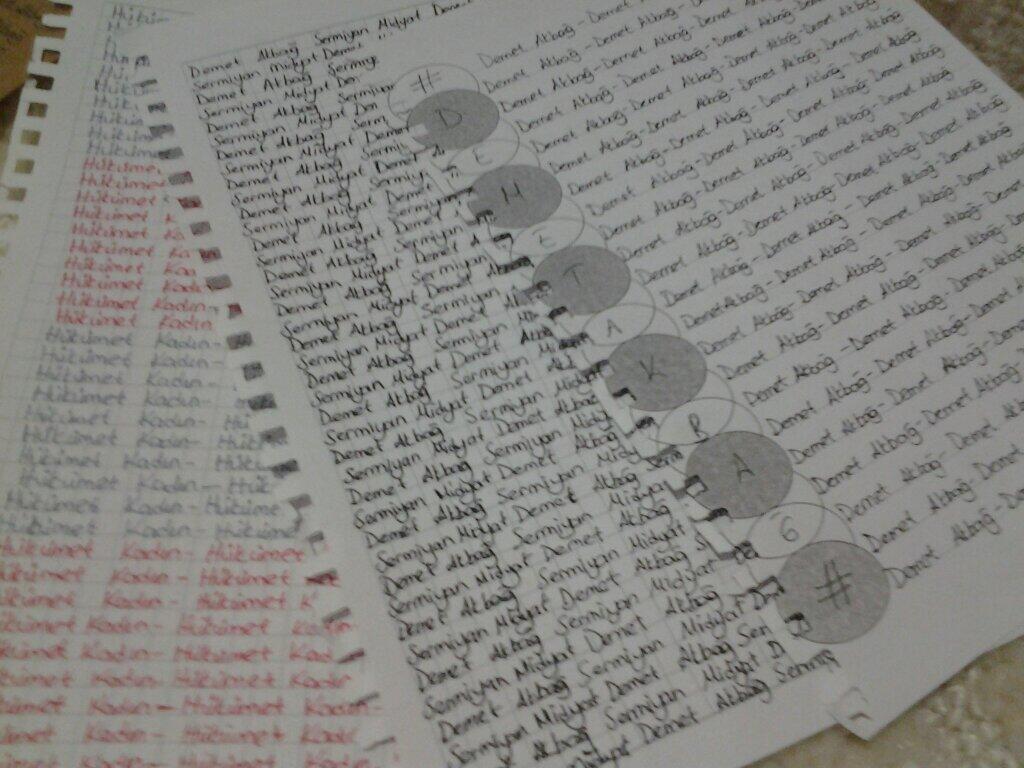 Hükümet
Hükümet
Hükümet K
Hükümet Ka
Hükümet Ka
Hükümet Kad
Hükümet Kadın
Hükümet Kadın
Hükümet Kadın-
Hükümet Kadın-
Hükümet Kadın-
Hükümet Kadın-
Hükümet Kadın- Hü
Hükümet Kadın- Hük
Hükümet Kadın- Hükü
Hükümet Kadın- Hük
Hükümet Kadın- Hüküme
Hükümet Kadın- Hükümet
Hükümet Kadın- Hükümet
Hükümet Kadın- Hükümet
Hükümet Kadın- Hükümet K
Hükümet Kadın- Hükümet Ka
Hükümet Kadın- Hükümet Kad
Hükümet Kadın- Hükümet Kadın
Hükümet Kadın- Hükümet Kadın-
Hükümet Kadın- Hükümet Kadı
Demet Akbağ Sermiyan Midyat Demet
Sermiyan Midyat Demet
Demet Akbağ Sermiy
Sermiyan Midyat De
Demet Akbağ Sermiyan
Sermiyan Midyat Dem
Demet Akbağ Serm
Sermiyan Midyat Demet
Demet Akbağ Sermiyan
Sermiyan Midyat Demet A
Demet Akbağ Sermiyan
Sermiyan Midyat Demet
Demet Akbağ Sermiyan
Sermiyan Midyat Demet A
Demet Akbağ Sermiyan
Sermiyan Midyat Demet Akbağ
Demet Akbağ Sermiyan
Sermiyan Midyat Demet Akbağ
Demet Akbağ Sermiyan Midyat
Sermiyan Midyat Demet Akbağ
Demet Akbağ Sermiyan Midyat
Sermiyan Midyat Demet Akbağ Serm
Demet Akbağ Sermiyan Midyat
Sermiyan Midyat Demet Akbağ
Demet Akbağ Sermiyan Midyat
Sermiyan Midyat Demet Akbağ S
Demet Akbağ Sermiyan Midyat De
Sermiyan Midyat Demet Akbağ
Demet Akbağ Sermiyan Midyat Dem
Sermiyan Midyat Demet Akbağ Ser
Akbağ Sermiyan Midyat D
Midyat Demet Akbağ Sermiy
#
D
E
M
E
T
A
K
B
A
G
#
Demet Akbağ - Demet Akbağ - Demet
Demet Akbağ - Demet Akbağ - Demet Akbağ
Demet Akbağ - Demet Akbağ - Demet Akbağ
Demet Akbağ - Demet Akbağ - Demet Akbağ
Demet Akbağ - Demet Akbağ - Demet Akbağ
Demet Akbağ - Demet Akbağ - Demet Akbağ
Demet Akbağ - Demet Akbağ - Demet Akbağ
Demet Akbağ - Demet Akbağ - Demet Akbağ
Demet Akbağ - Demet Akbağ - Demet Akbağ
Demet Akbağ - Demet Akbağ - Demet Akbağ
Demet Akbağ - Demet Akbağ - Demet Akbağ
Demet Akbağ - Demet Akbağ - Demet
Demet Akbağ - Demet Akbağ - Demet
Demet Akbağ - Demet Akbağ - Demet
Demet Akbağ - Demet Akbağ
Demet Akbağ - Demet Akbağ
Demet Akbağ - Demet
Demet Akbağ - Demet
Demet Akbağ - D